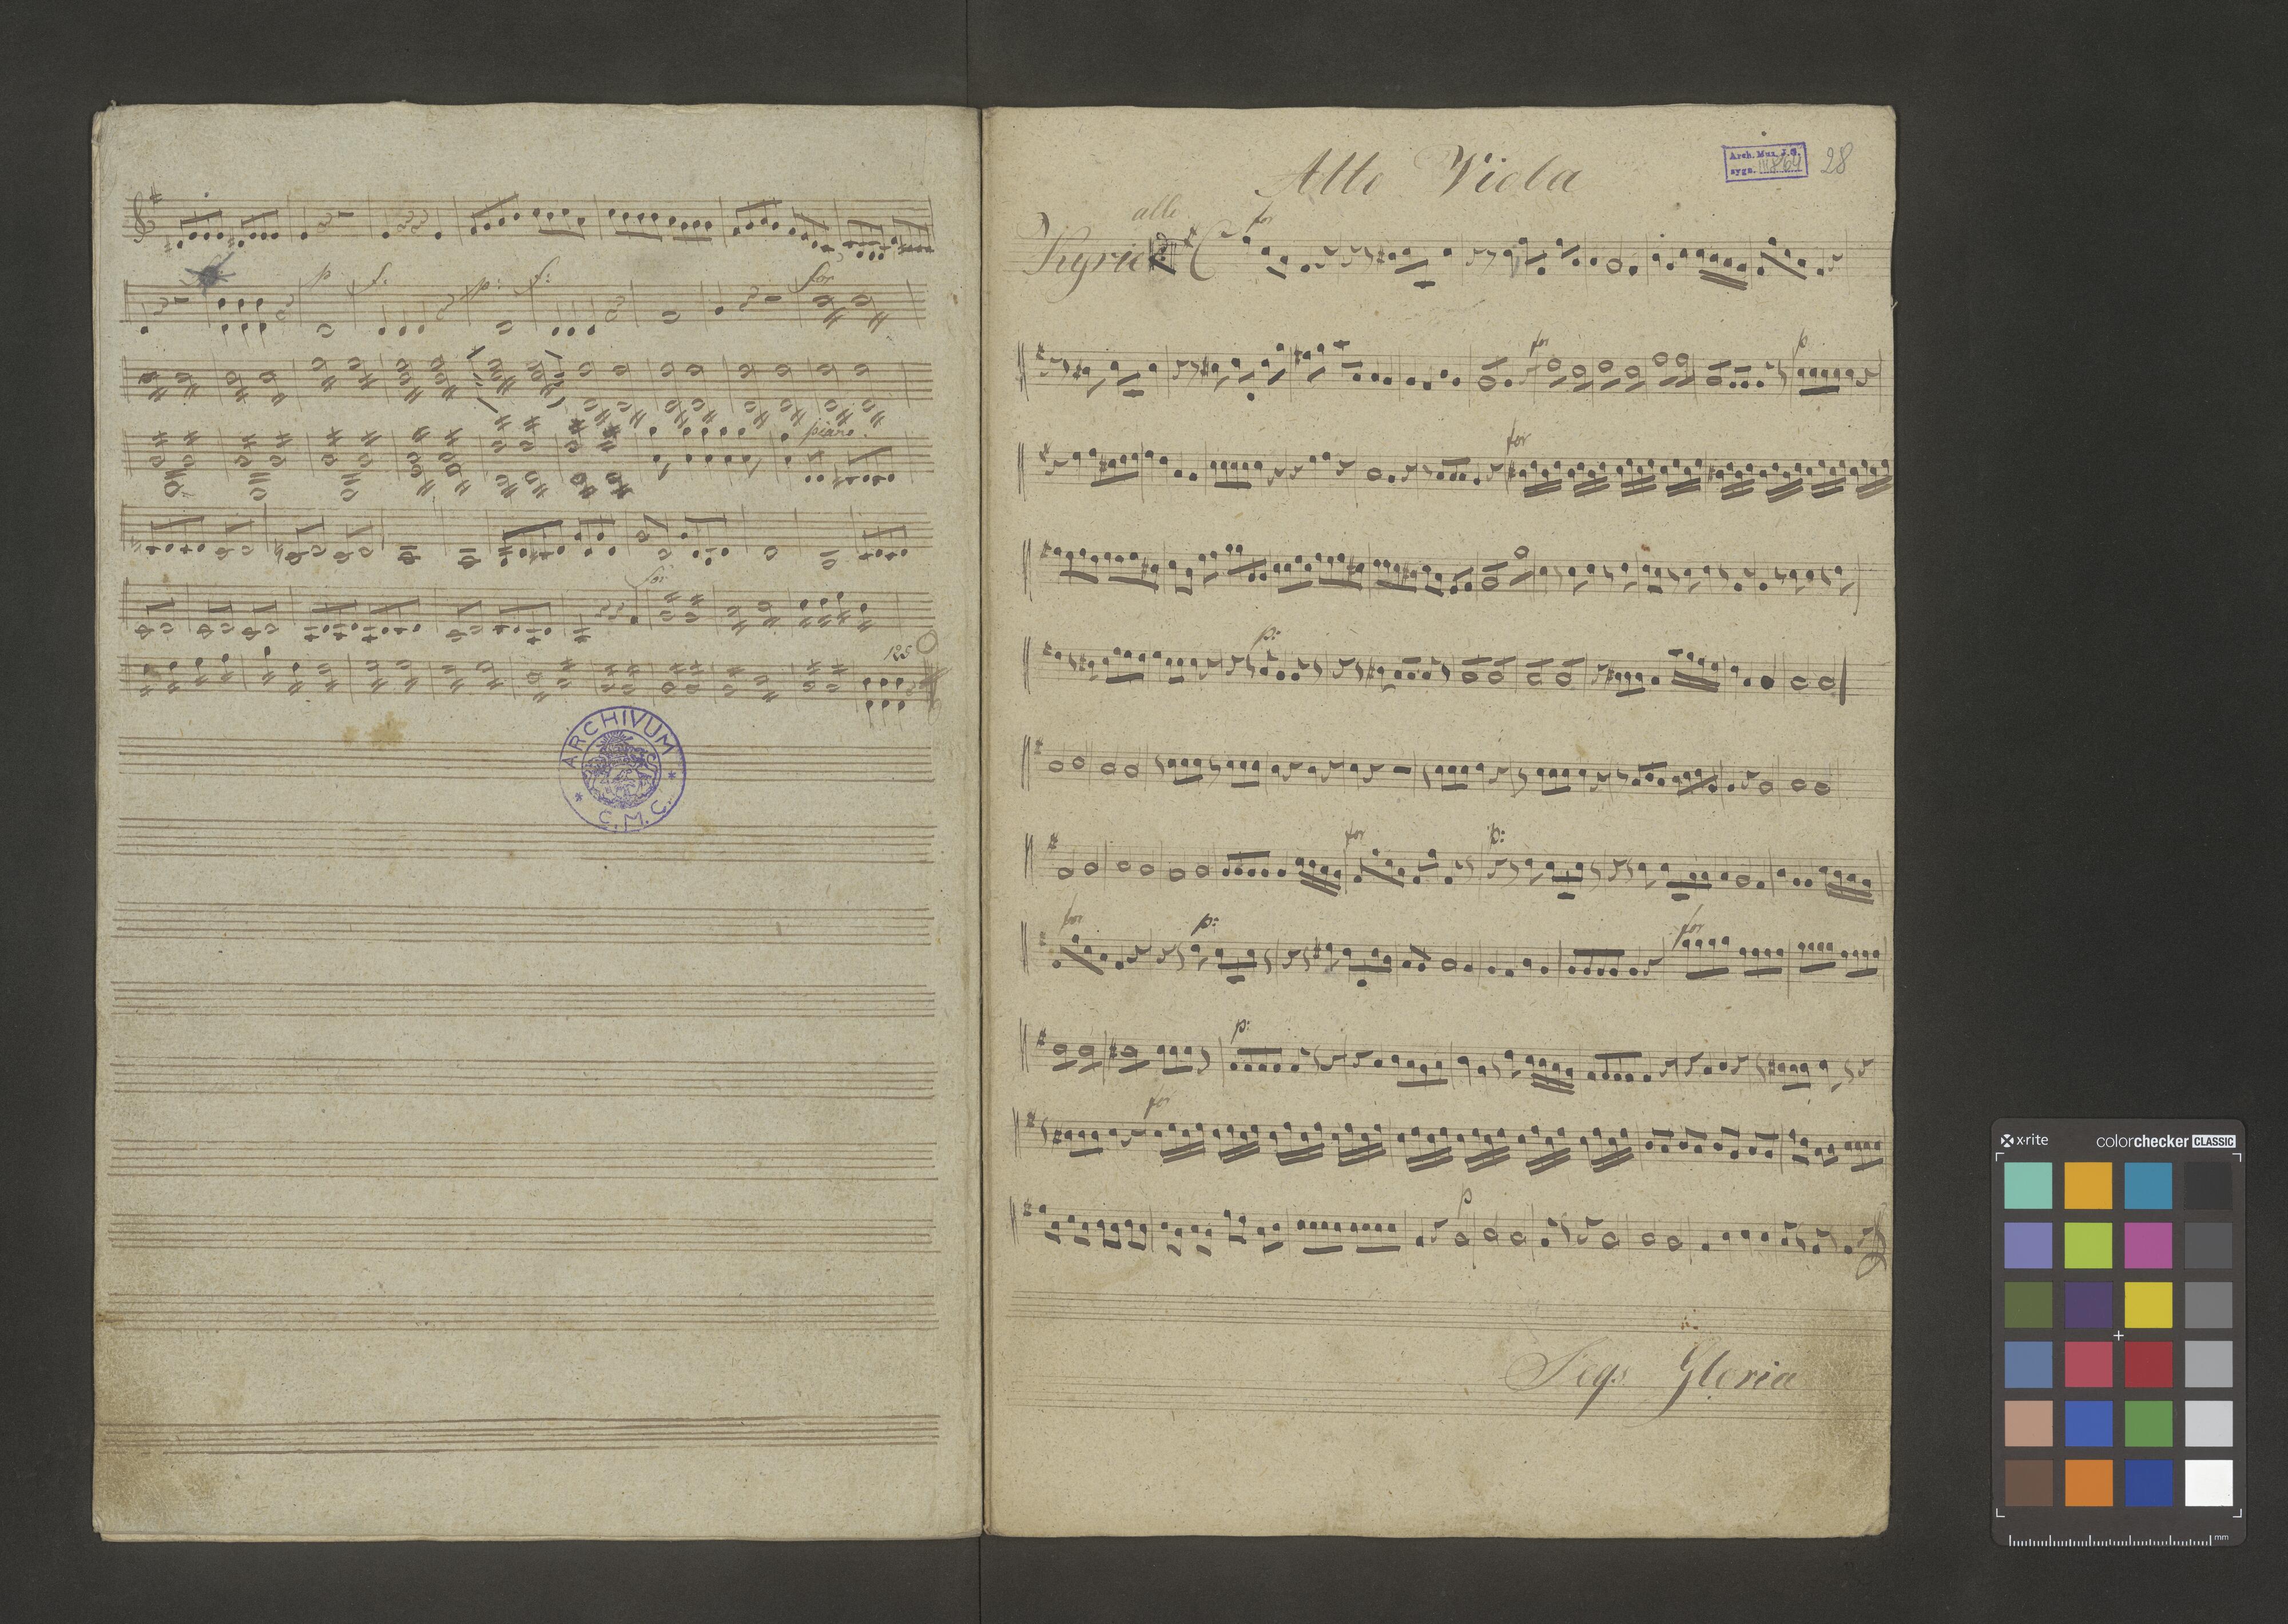 p f. p: f: for
piano.
for
125
ARCHIVUM
* C. M. C. *
Alto Viola
Arch. Muz. J.G.
sygn. III 864
28
allo
for
Kyrie
for p
for
p:
for p:
for p: for
p:
for
p
Seqs Gloria
x-rite colorchecker CLASSIC
mm